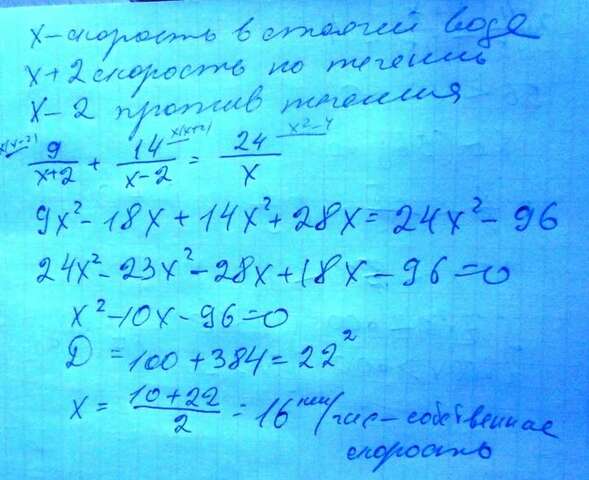 x - скорость в стоячей воде
x+2 скорость по течению
x-2 против течения
x(x-2) 9/(x+2) + 14/(x-2) x(x+2) = 24/x x²-4
9x² - 18x + 14x² + 28x = 24x² - 96
24x² - 23x² - 28x + 18x - 96 = 0
x² - 10x - 96 = 0
D = 100 + 384 = 22²
x = (10+22)/2 = 16 км/час - собственная
скорость